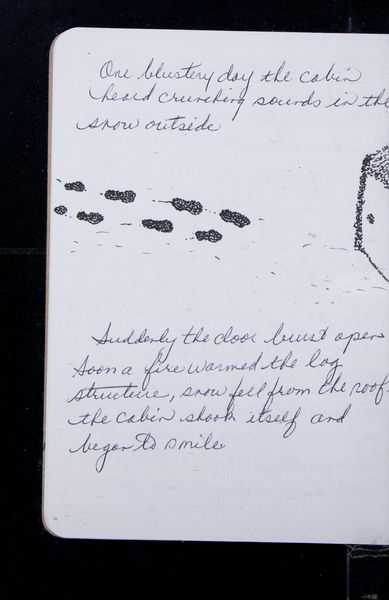 One blustery day the cabin
heard crunching sounds in the
snow outside
Suddenly the door burst open
Soon a fire warmed the log
structure, snow fell from the roof
the cabin shook itself and
began to smile